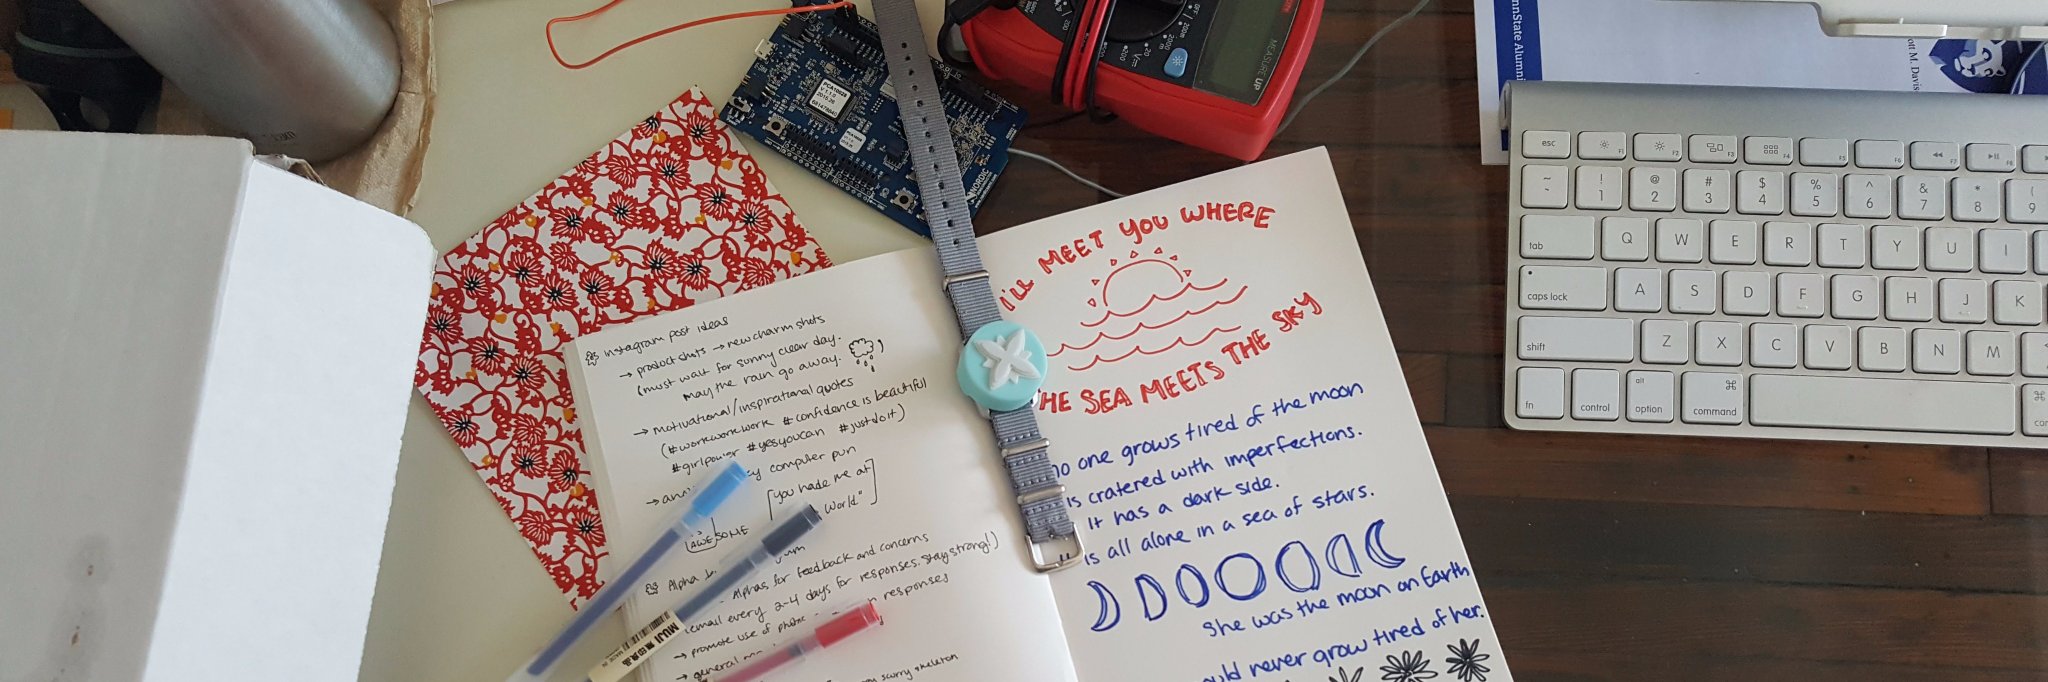 instagram post ideas
→ product shots → new charm shots
(must wait for sunny clear day.
may the rain go away.
→ motivational/inspirational quotes
(#workworkwork #confidence is beautiful
#girlpower #yesyoucan #justdoit)
computer pun
[you hade me at
World"]
AWESOME
Alpha
Alphas for feedback and concerns
email every 2-4 days for responses. Stay strong!)
→ promote use of
responses
→ general
scurry skeleton
MUJI 無印良品
I'll MEET YOU WHERE
THE SEA MEETS THE SKY
no one grows tired of the moon
is cratered with imperfections.
it has a dark side.
is all alone in a sea of stars.
She was the moon on Earth
never grow tired of her.
PCA10028
V 1.1.0
2015.26
NORDIC
MEASURE UP
OFF
200m
2000m
20
200
V
nnState Alumni
ott M. Davis
esc
F1
F2
F3
F4
F5
F6
F7
F8
~ `
! 1
@ 2
# 3
$ 4
% 5
^ 6
& 7
* 8
( 9
tab
Q W E R T Y U I
caps lock
A S D F G H J K
shift
Z X C V B N M
fn
control
alt option
⌘ command
⌘